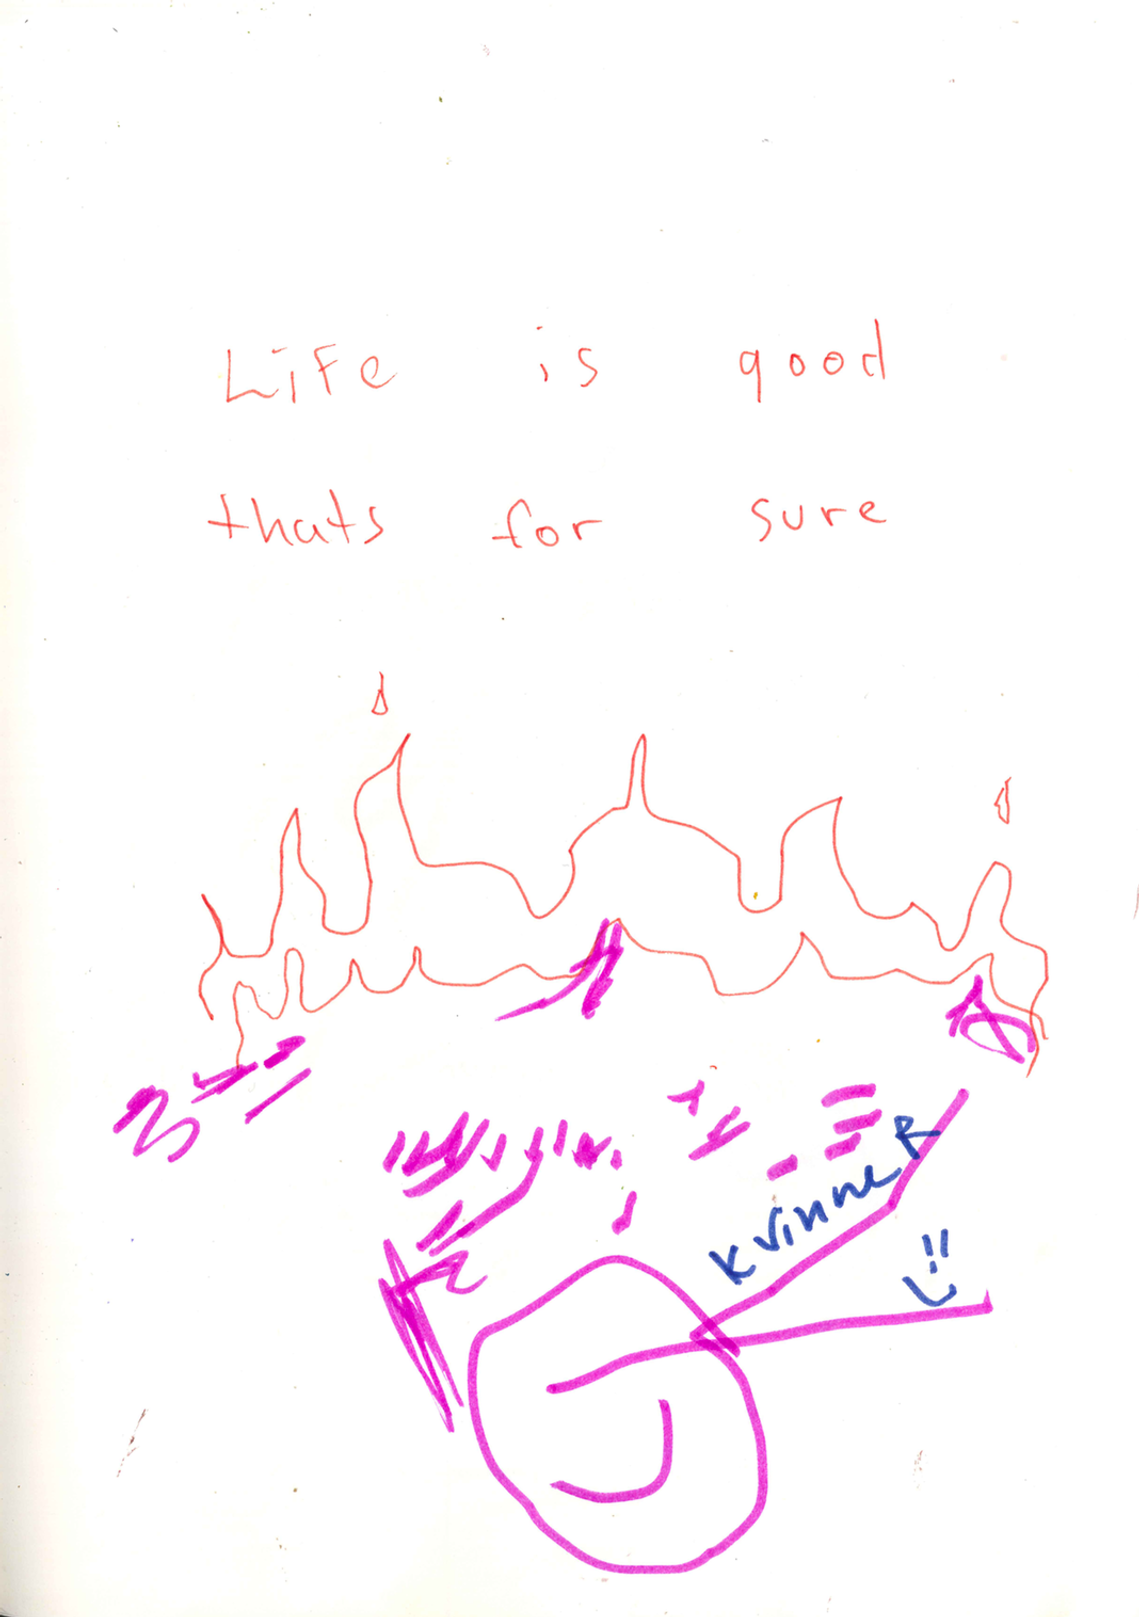 LiFe is good
thats for sure
KvinneR